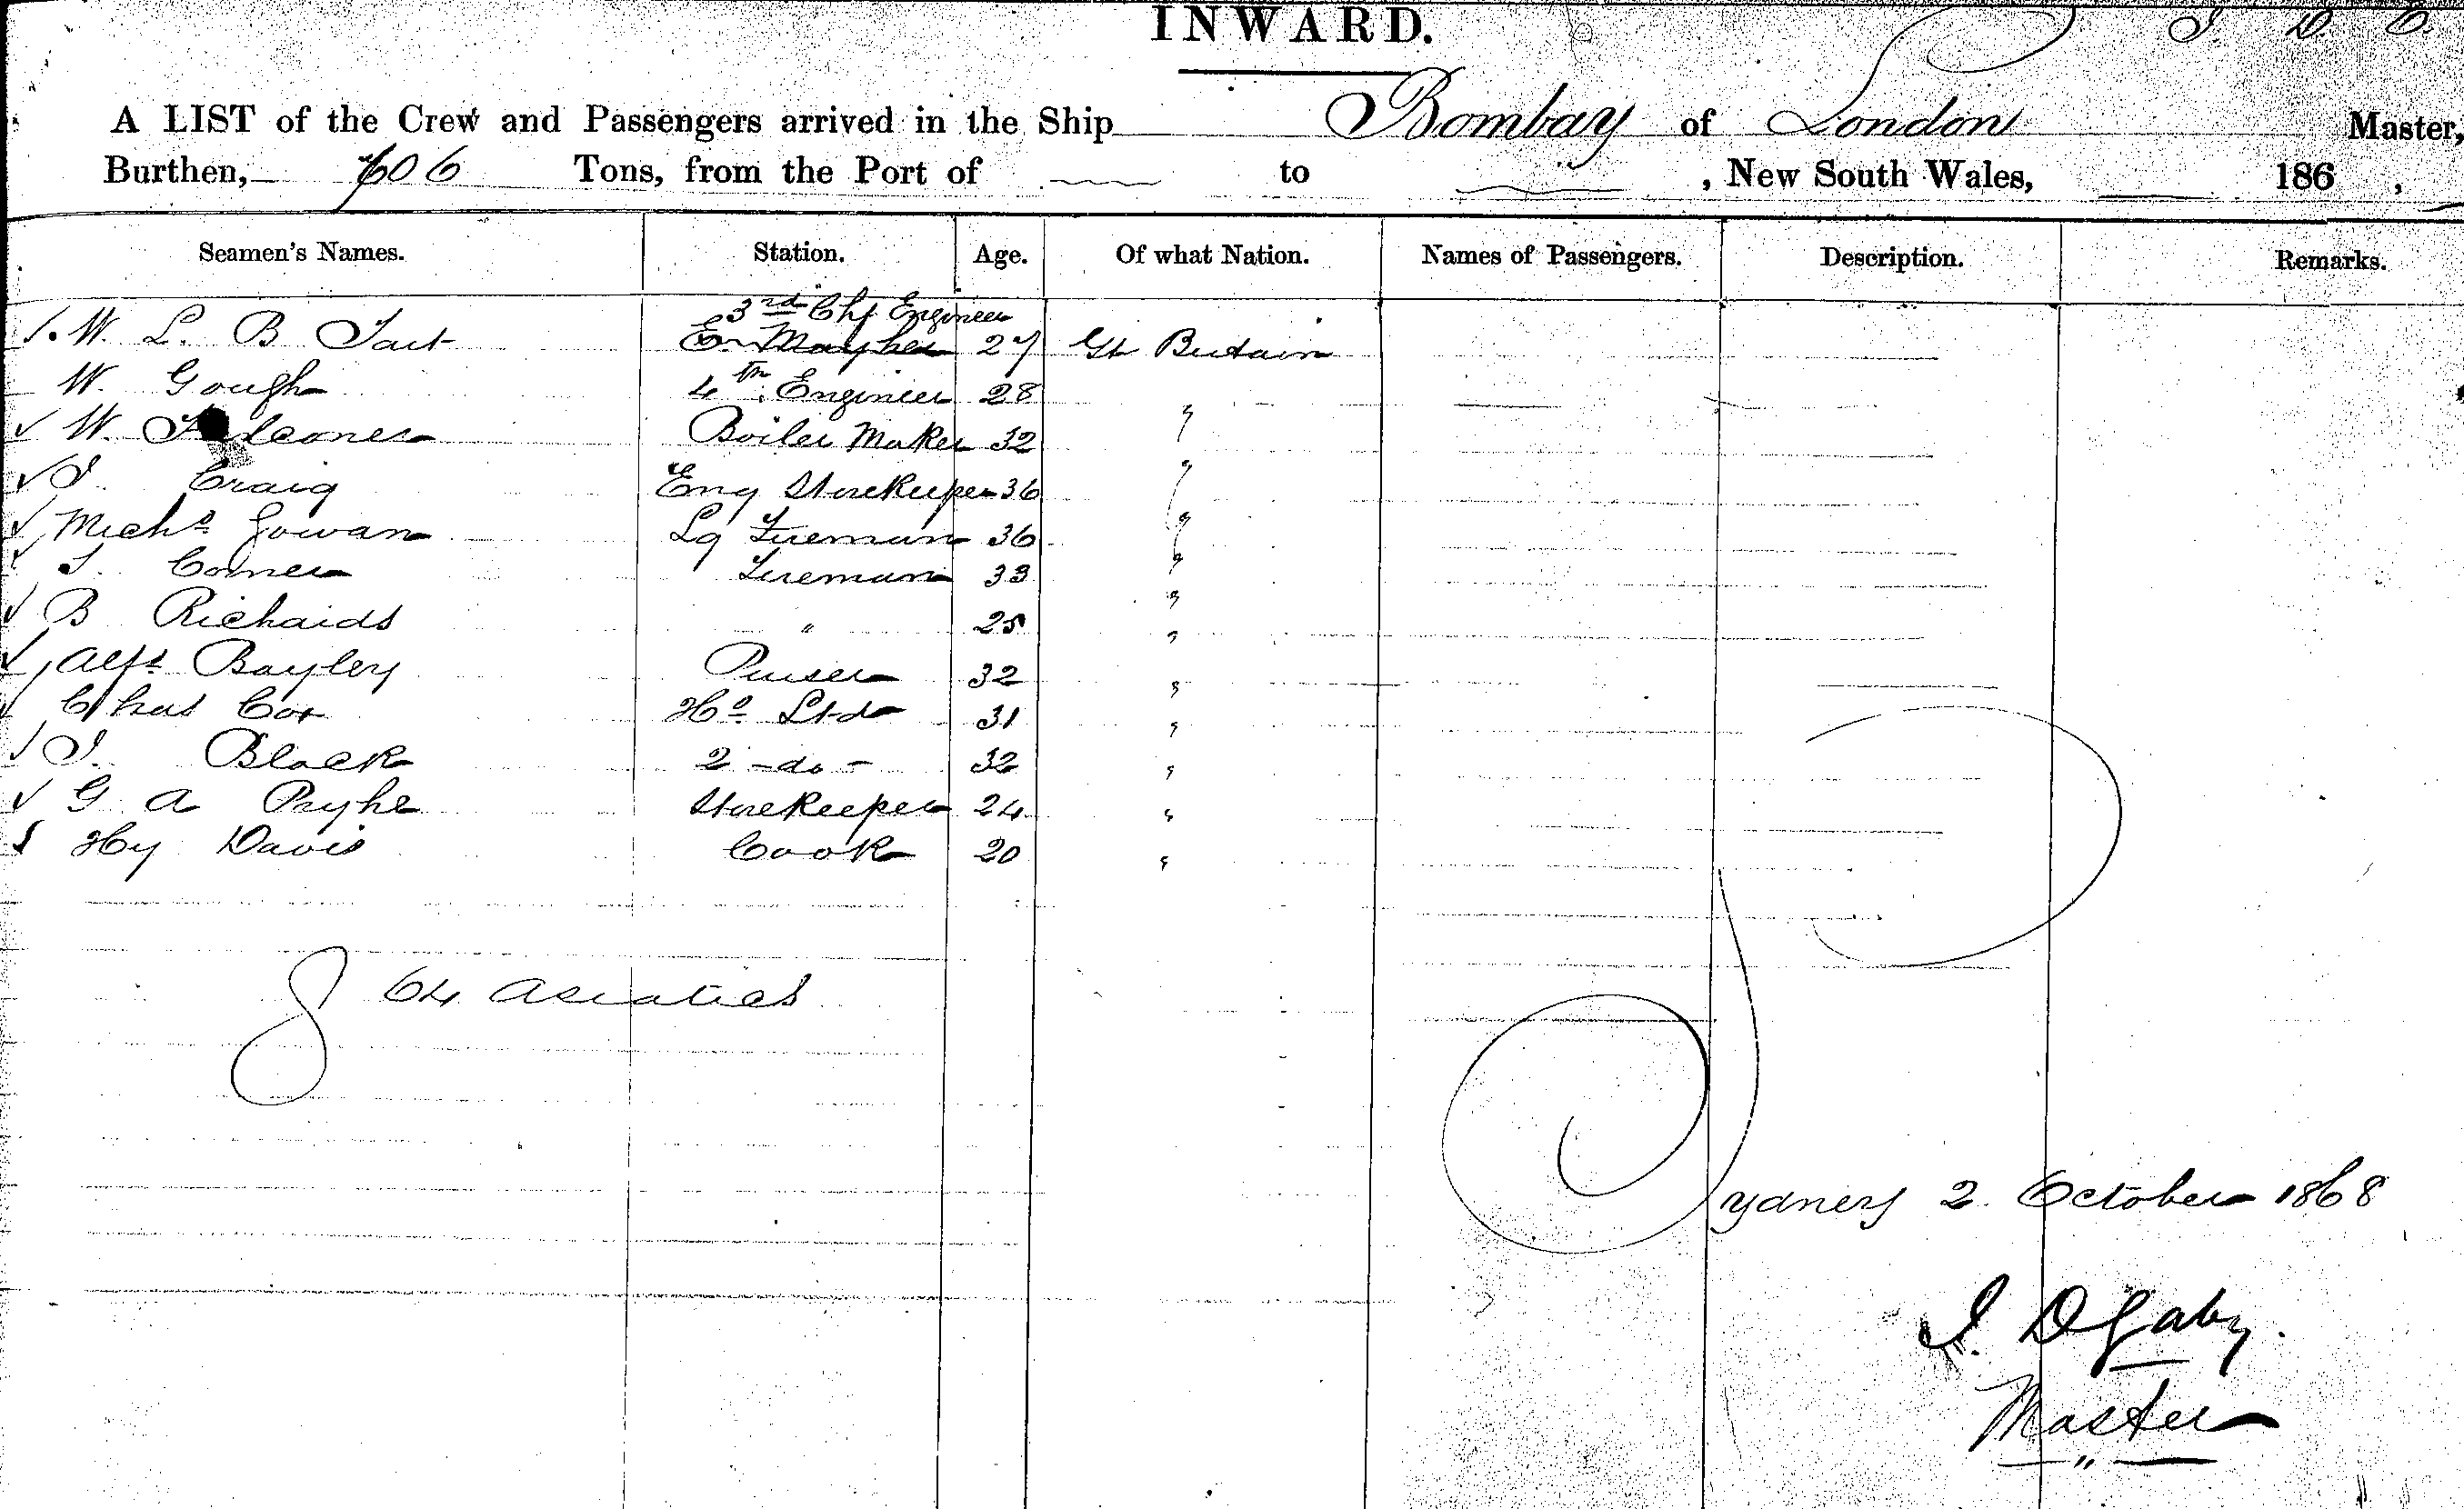 INWARD.
A LIST of the Crew and Passengers arrived in the Ship Bombay of London Master,
Burthen, 606 Tons, from the Port of to , New South Wales, 186 ,
Seamen's Names. Station. Age. Of what Nation. Names of Passengers. Description. Remarks.
3rd Chf Engineer
W. L. B Tait 27 Gt Britain
W. Gough 4th Engineer 28 "
W. Falconer Boiler Maker 32 "
J. Craig Eng Storekeeper 36 "
Michl Gowan Lg Fireman 36 "
J. Comer Fireman 33 "
B Richards " 25 "
Alfd Bayley Purser 32 "
Chas Cox Hd Std 31 "
J. Black 2 - do - 32 "
G A Pryke Storekeeper 24 "
Hy Davis Cook 20 "
64 Asiatics
Sydney 2. October 1868
J. D Gaby.
Master